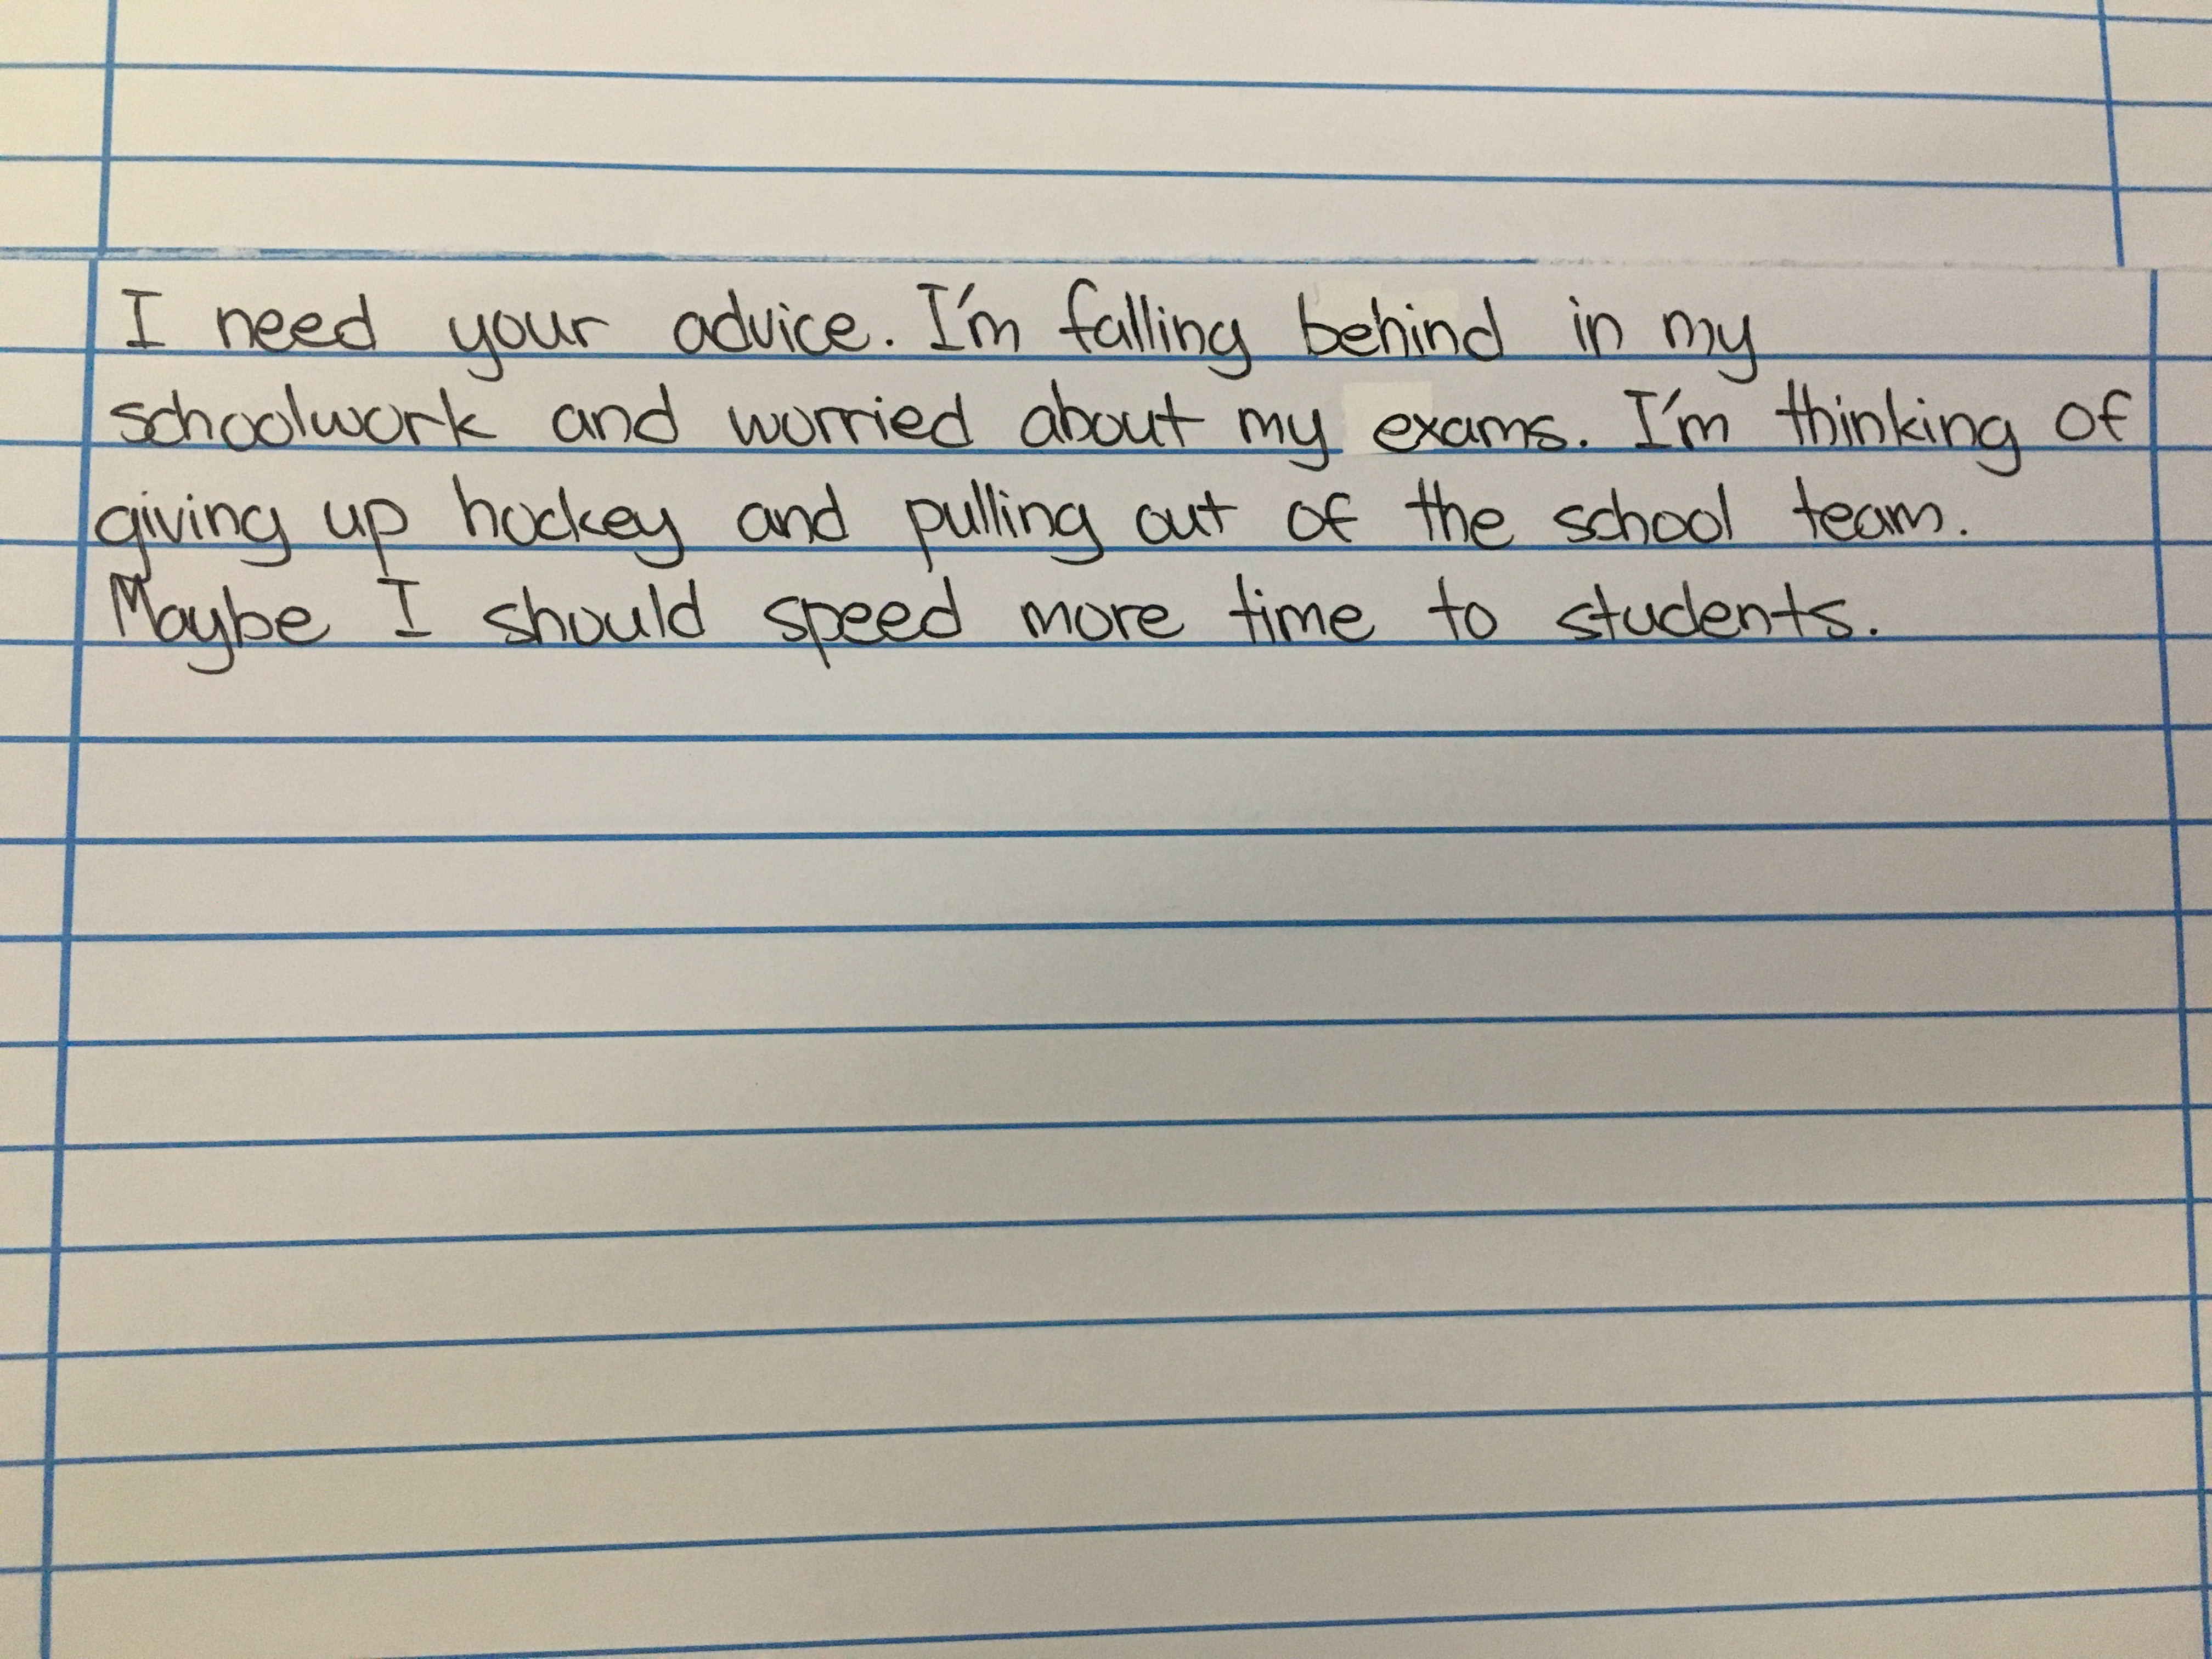 I need your advice. I'm falling behind in my
schoolwork and worried about my exams. I'm thinking of
giving up hockey and pulling out of the school team.
Maybe I should speed more time to students.